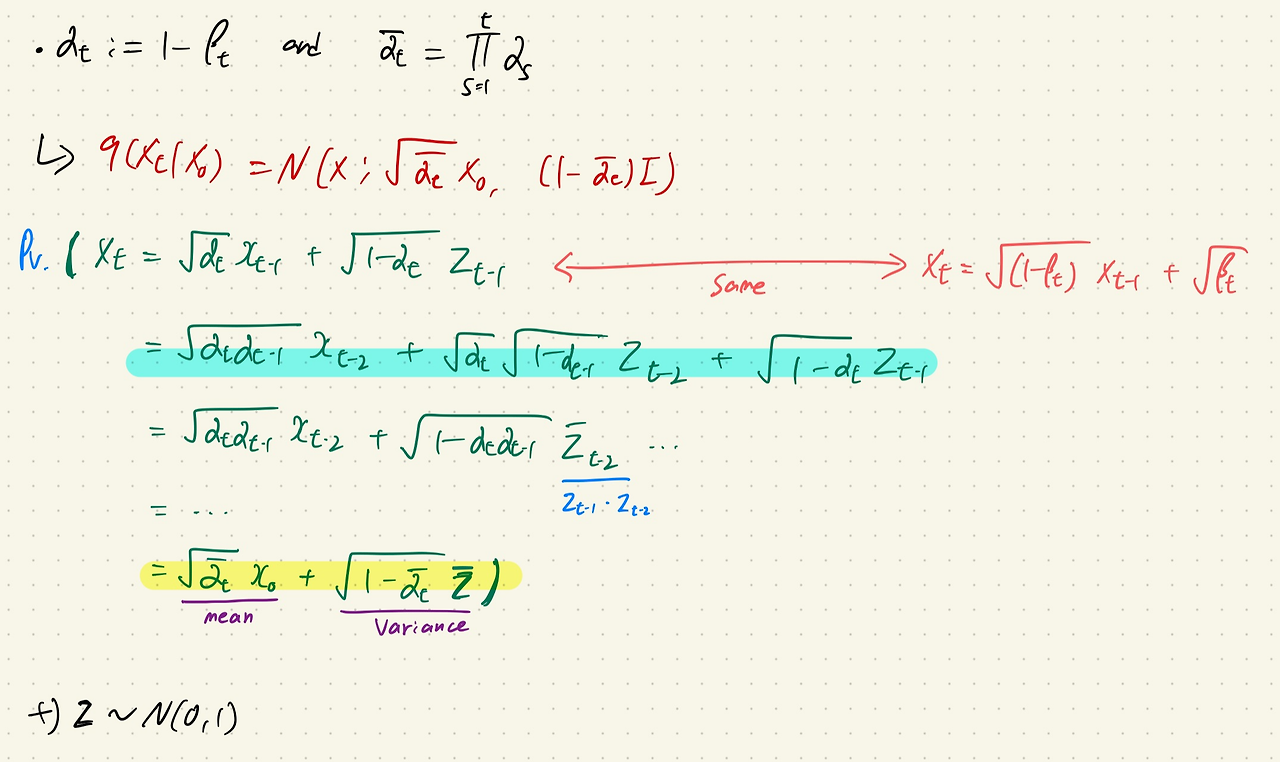 · α_t := 1 - β_t and ᾱ_t = ∏_{s=1}^{t} α_s
↳ q(x_t|x_0) = N(x; √ᾱ_t x_0, (1-ᾱ_t)I)
Pr. ( x_t = √α_t x_{t-1} + √(1-α_t) z_{t-1} ⟷ same x_t = √(1-β_t) x_{t-1} + √β_t
= √(α_t α_{t-1}) x_{t-2} + √α_t √(1-α_{t-1}) z_{t-2} + √(1-α_t) z_{t-1}
= √(α_t α_{t-1}) x_{t-2} + √(1-α_t α_{t-1}) z̄_{t-2} ...
z_{t-1} · z_{t-2}
= ...
= √ᾱ_t x_0 + √(1-ᾱ_t) z̄ )
mean Variance
+) z ~ N(0,1)